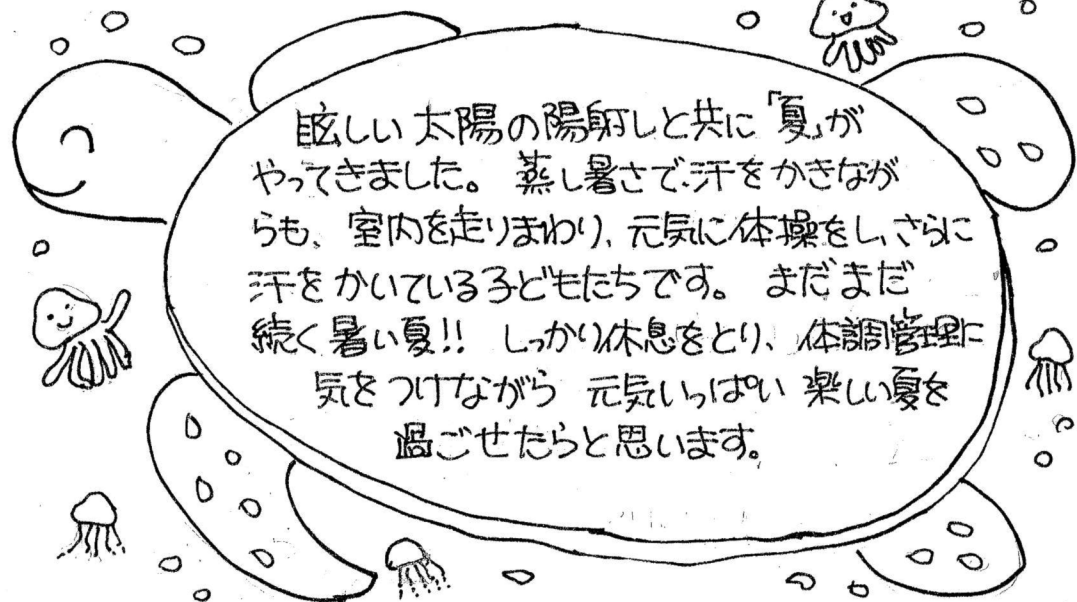 眩しい太陽の陽射しと共に「夏」が
やってきました。蒸し暑さで、汗をかきなが
らも、室内を走りまわり、元気に体操をし、さらに
汗をかいている子どもたちです。まだまだ
続く暑い夏!! しっかり休息をとり、体調管理に
気をつけながら 元気いっぱい 楽しい夏を
過ごせたらと思います。